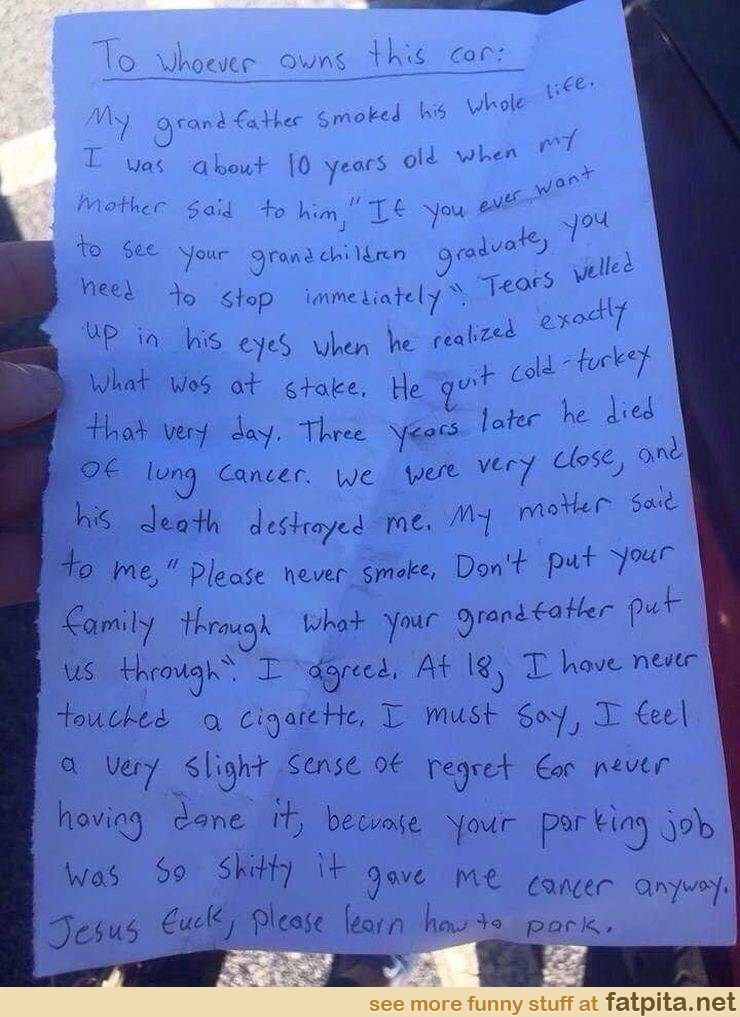 To whoever owns this car:
My grandfather smoked his whole life.
I was about 10 years old when my
mother said to him, "If you ever want
to see your grandchildren graduate, you
need to stop immediately". Tears welled
up in his eyes when he realized exactly
what was at stake. He quit cold-turkey
that very day. Three years later he died
of lung cancer. We were very close, and
his death destroyed me. My mother said
to me, "Please never smoke. Don't put your
family through what your grandfather put
us through". I agreed. At 18, I have never
touched a cigarette. I must say, I feel
a very slight sense of regret for never
having done it, becuase your parking job
was so shitty it gave me cancer anyway.
Jesus fuck, please learn how to park.
see more funny stuff at fatpita.net